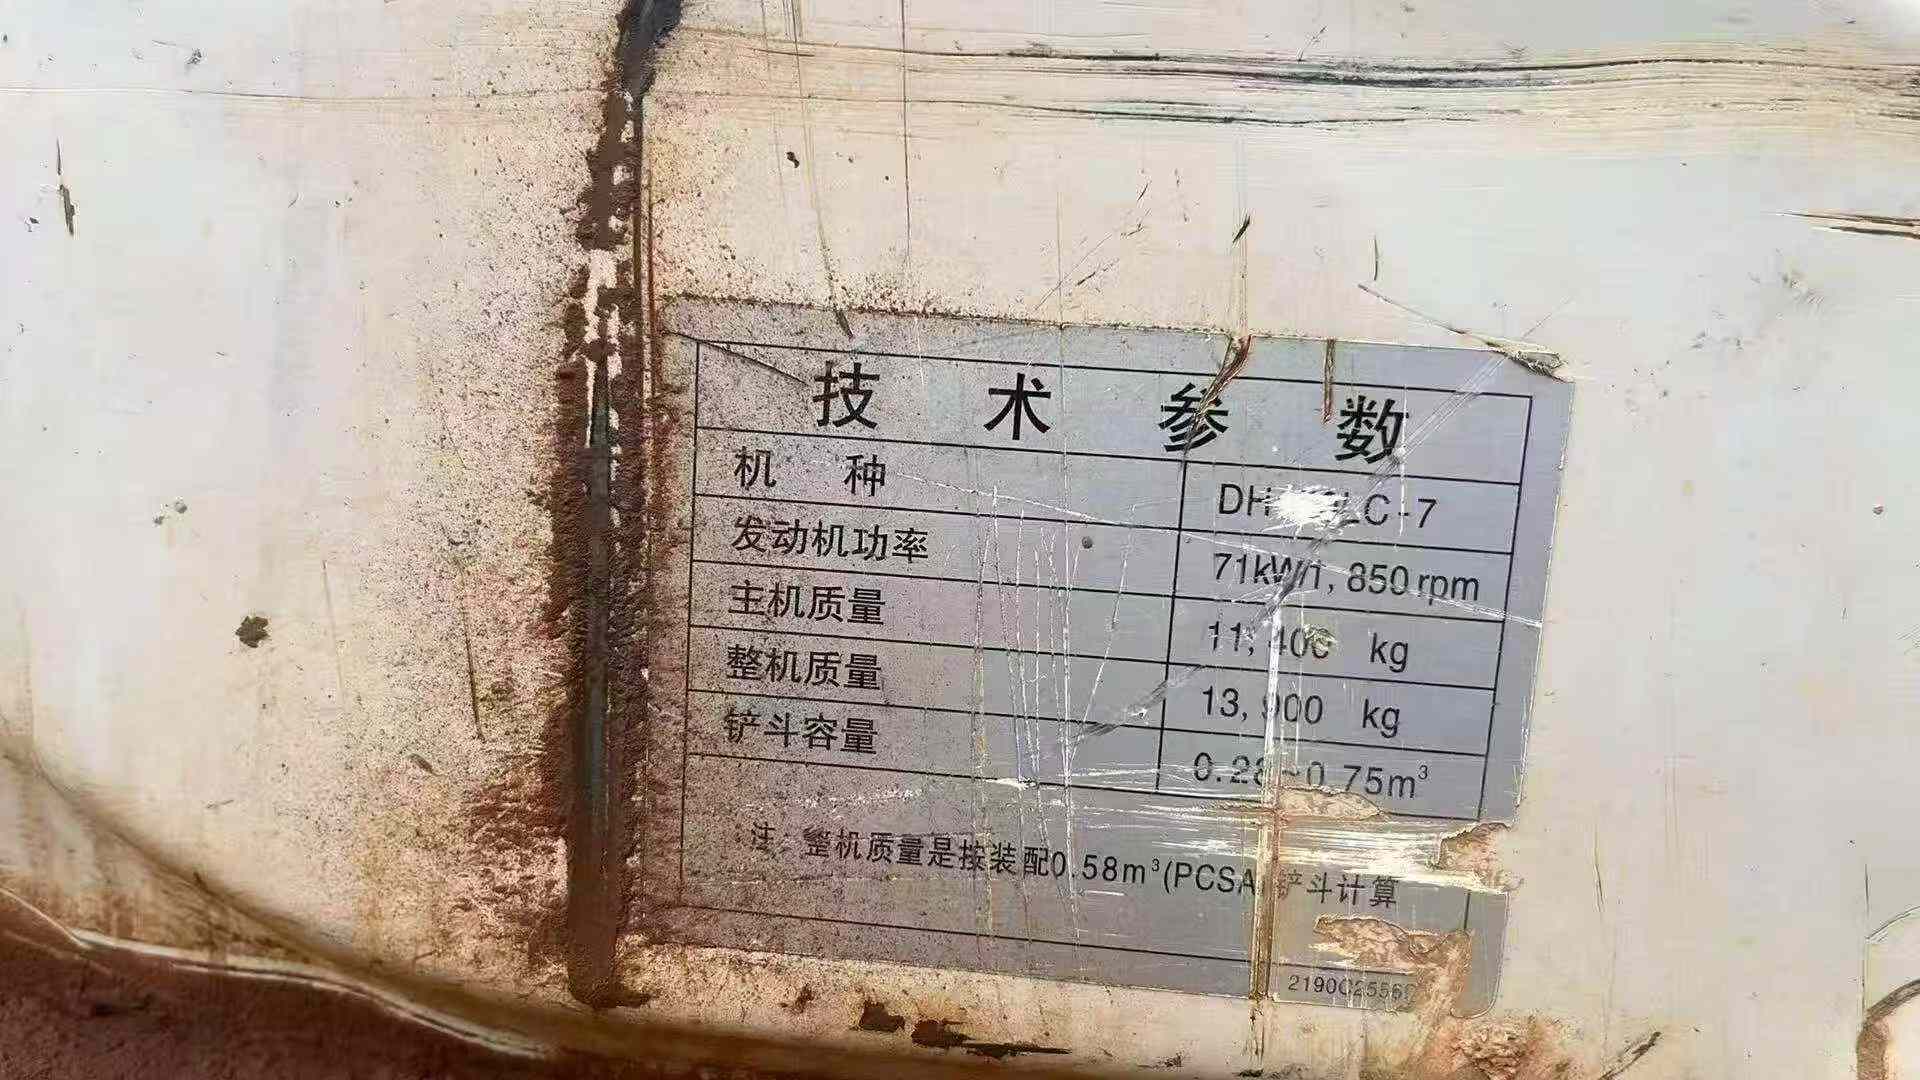 技术参数
机种 DH LC-7
发动机功率 71kW/1,850rpm
主机质量 11,400 kg
整机质量 13,900 kg
铲斗容量 0.28~0.75m³
注：整机质量是按装配0.58m³(PCSA)铲斗计算